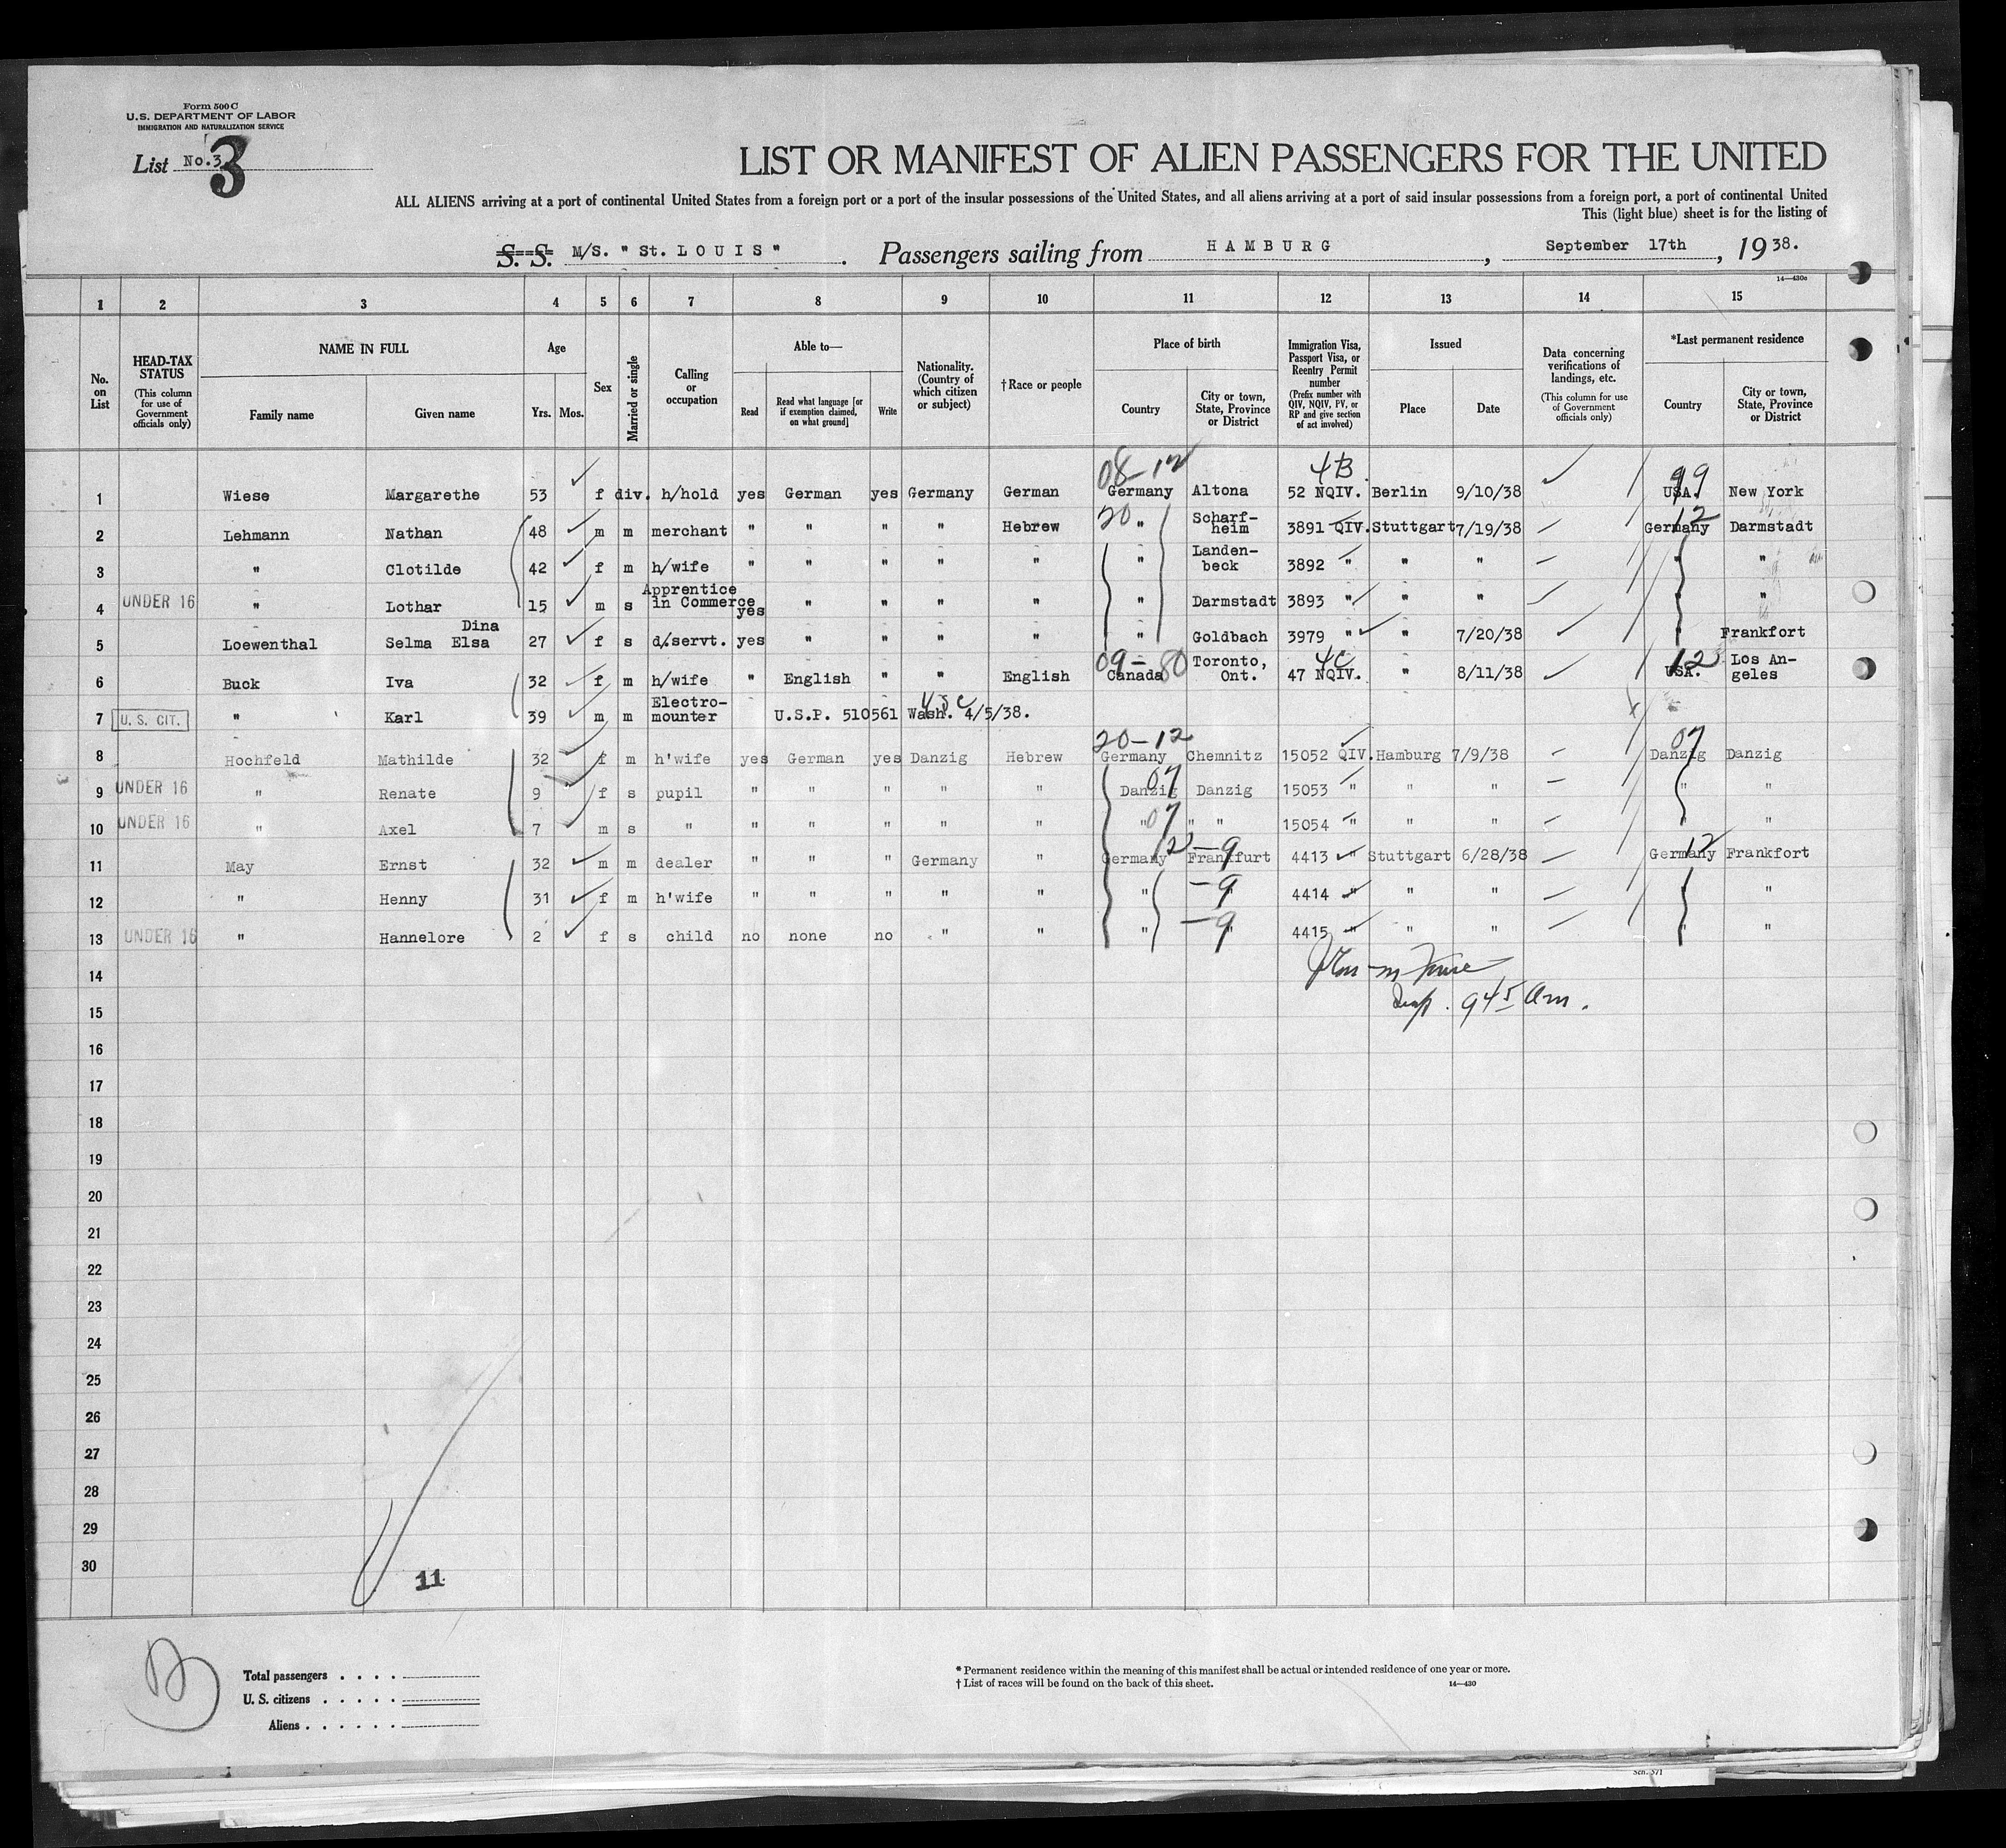 Form 500 C
U.S. DEPARTMENT OF LABOR
IMMIGRATION AND NATURALIZATION SERVICE
List No.3 3
LIST OR MANIFEST OF ALIEN PASSENGERS FOR THE UNITED
ALL ALIENS arriving at a port of continental United States from a foreign port or a port of the insular possessions of the United States, and all aliens arriving at a port of said insular possessions from a foreign port, a port of continental United
This (light blue) sheet is for the listing of
S. S. M/S. " St. LOUIS " . Passengers sailing from HAMBURG , September 17th , 19 38.
14—430c
1 2 3 4 5 6 7 8 9 10 11 12 13 14 15
No. on List
HEAD-TAX STATUS (This column for use of Government officials only)
NAME IN FULL Family name Given name
Age Yrs. Mos.
Sex
Married or single
Calling or occupation
Able to— Read Read what language [or if exemption claimed, on what ground] Write
Nationality. (Country of which citizen or subject)
† Race or people
Place of birth Country City or town, State, Province or District
Immigration Visa, Passport Visa, or Reentry Permit number (Prefix number with QIV, NQIV, PV, or RP and give section of act involved)
Issued Place Date
Data concerning verifications of landings, etc. (This column for use of Government officials only)
*Last permanent residence Country City or town, State, Province or District
08-12 4B 99
1 Wiese Margarethe 53 f div. h/hold yes German yes Germany German Germany Altona 52 NQIV. Berlin 9/10/38 USA. New York
20 12
2 Lehmann Nathan 48 m m merchant " " " " Hebrew " Scharf-heim 3891 QIV. Stuttgart 7/19/38 Germany Darmstadt
3 " Clotilde 42 f m h/wife " " " " " " Landen-beck 3892 " " " " "
4 UNDER 16 " Lothar 15 m s Apprentice in Commerce yes " " " " " Darmstadt 3893 " " " " "
5 Loewenthal Selma Dina Elsa 27 f s d/servt. yes " " " " " Goldbach 3979 " " 7/20/38 " Frankfort
09-80 4C 12
6 Buck Iva 32 f m h/wife " English " " English Canada Toronto, Ont. 47 NQIV. " 8/11/38 USA. Los An-geles
USC
7 U. S. CIT. " Karl 39 m m Electro-mounter U.S.P. 510561 Wash. 4/5/38.
20-12 07
8 Hochfeld Mathilde 32 f m h'wife yes German yes Danzig Hebrew Germany Chemnitz 15052 QIV. Hamburg 7/9/38 Danzig Danzig
07
9 UNDER 16 " Renate 9 f s pupil " " " " " Danzig Danzig 15053 " " " " "
07
10 UNDER 16 " Axel 7 m s " " " " " " " " " 15054 " " " " "
12-9 12
11 May Ernst 32 m m dealer " " " Germany " Germany Frankfurt 4413 " Stuttgart 6/28/38 Germany Frankfort
-9
12 " Henny 31 f m h'wife " " " " " " " 4414 " " " " "
-9
13 UNDER 16 " Hannelore 2 f s child no none no " " " " 4415 " " " " "
14
15 9 45 Am.
16
17
18
19
20
21
22
23
24
25
26
27
28
29
30
11
B
Total passengers . . . .
U. S. citizens . . . . .
Aliens . . . . . .
* Permanent residence within the meaning of this manifest shall be actual or intended residence of one year or more.
† List of races will be found on the back of this sheet.
14—430
Sch. 571